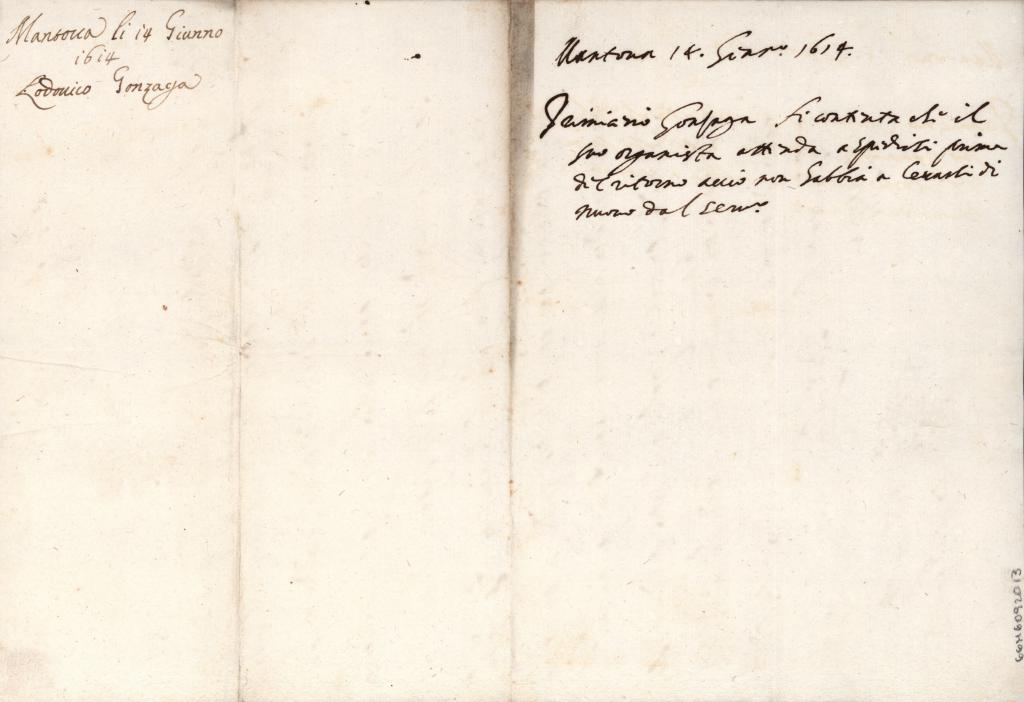 Mantova li 14 Giunno
1614
Lodovico Gonzaga
Mantova 14. Giun.º 1614.
Gonzaga si contenta che il
suo organista attenda a spedirsi prima
del ritorno acciò non habbia a levarsi di
nuovo dal serv.º
66H6092013